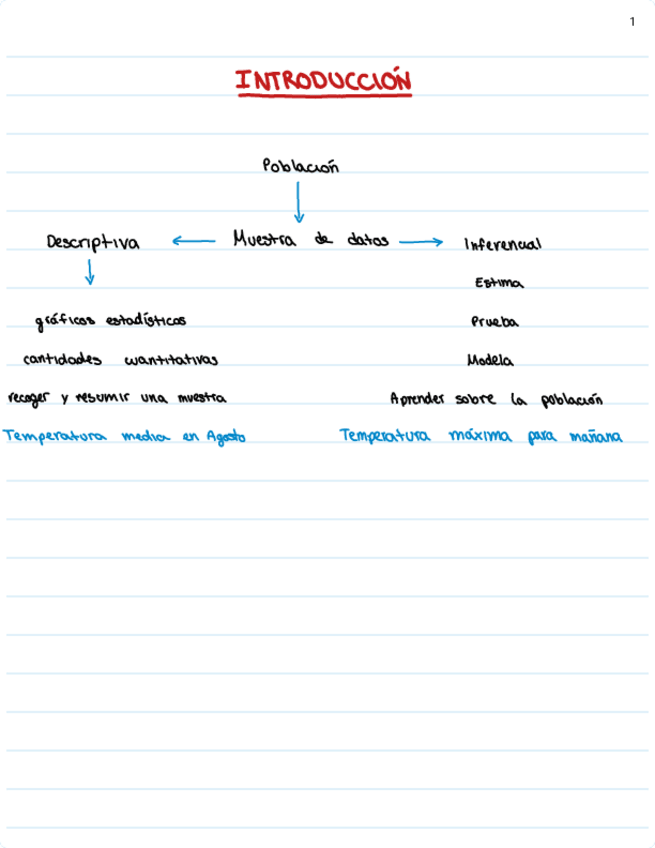 1
INTRODUCCIÓN
Población
Descriptiva ← Muestra de datos → Inferencial
Estima
gráficos estadísticos Prueba
cantidades cuantitativas Modela
recoger y resumir una muestra Aprender sobre la población
Temperatura media en Agosto Temperatura máxima para mañana